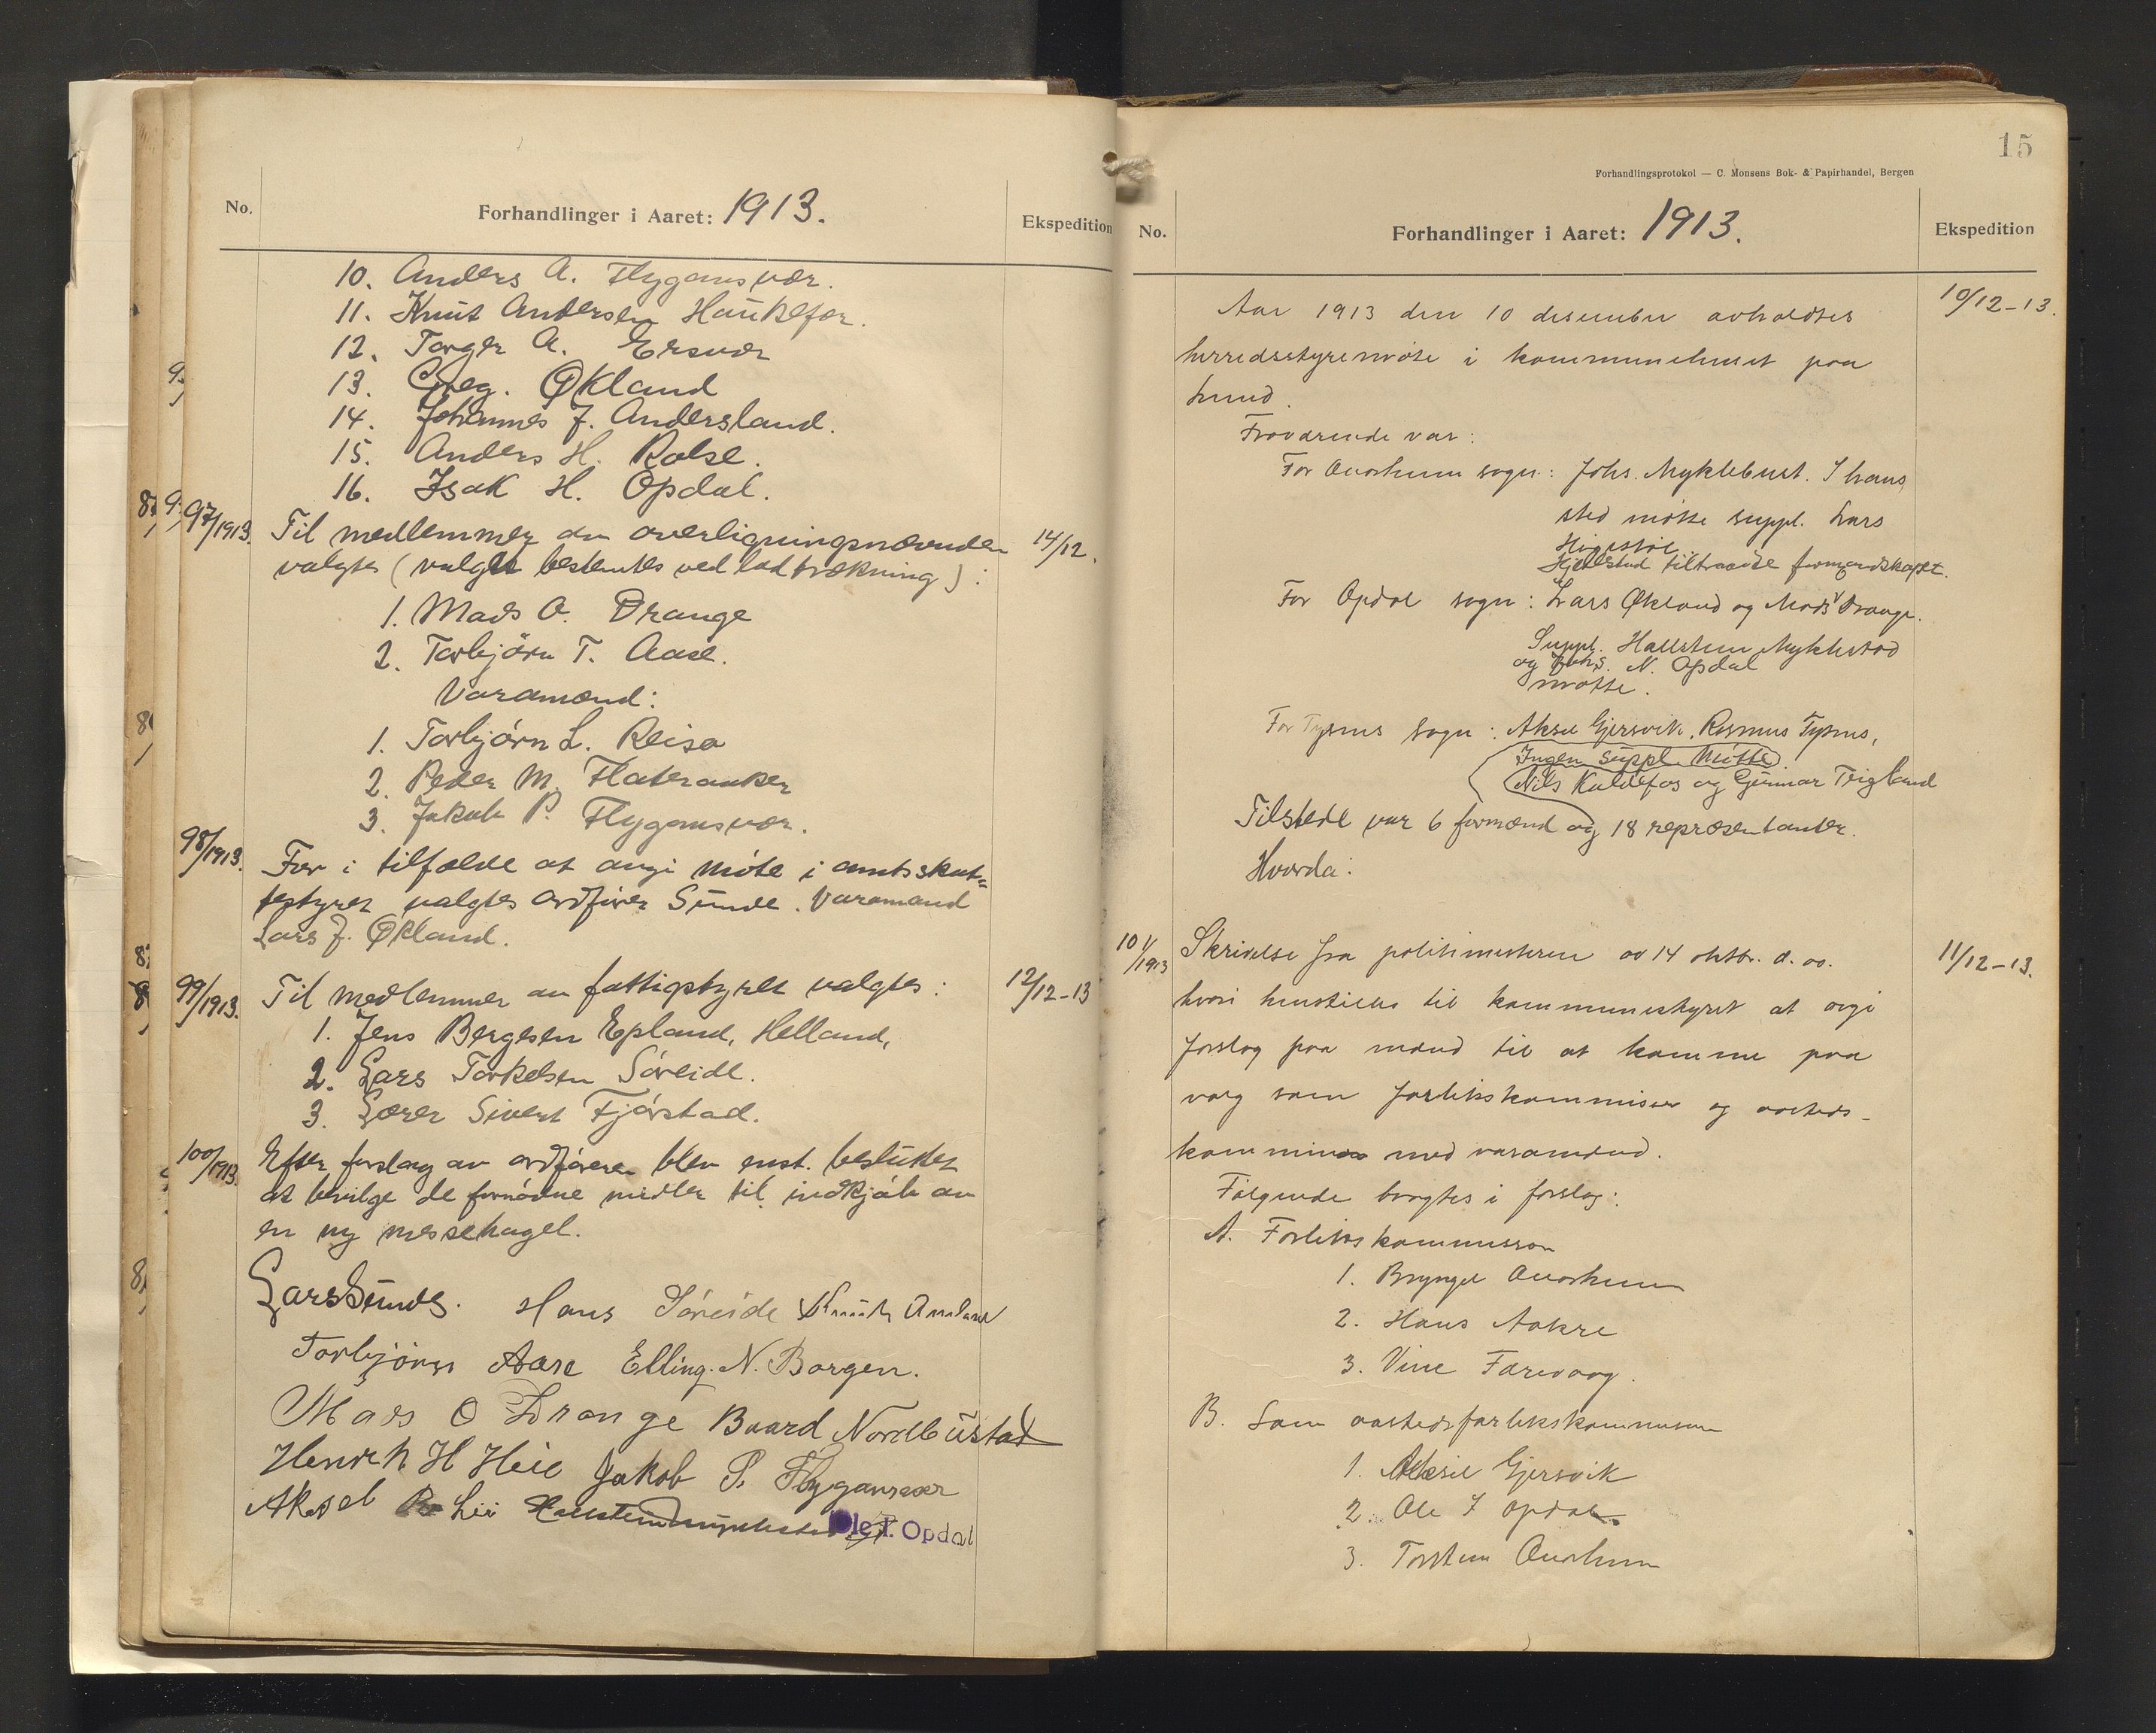 No.
Forhandlinger i Aaret: 1913.
Ekspedition
10. Anders A. Flygansvær.
11. Knut Andersen Haukefær.
12. Torger A. Ersvær
13. Greg. Økland
14. Johannes J. Andersland.
15. Anders H. Rolse.
16. Isak H. Opdal.
97/1913.
Til medlemmer av overligningsnævnden
14/12.
valgtes (valget bestemtes ved lodtrækning):
1. Mads O. Drange
2. Torbjörn T. Aase.
Varamænd:
1. Torbjörn L. Reisa
2. Peder M. Flateraaker
3. Jakob P. Flygansvær.
98/1913.
For i tilfælde at avgi möte i amtsskat=
testyret valgtes ordfører Sunde. Varamand
Lars J. Økland.
99/1913.
Til medlemmer av fattigstyret valgtes:
12/12-13
1. Jens Bergesen Epland, Helland,
2. Lars Torkelsen Söreide.
3. Lærer Sivert Fjörstad.
100/1913.
Efter forslag av ordföreren blev enst. besluttet
at bevilge de fornödne midler til indkjöb av
en ny messehagel.
Lars Sunde. Hans Söreide Knut
Torbjörn Aase Elling. N. Borgen.
Mads O Drange Baard Nordbustad
Henrik H Heie Jakob P. Flygansvær
Aksel Lii Ole T. Opdal
15
Forhandlingsprotokol — C. Monsens Bok- & Papirhandel, Bergen
No.
Forhandlinger i Aaret: 1913.
Ekspedition
10/12-13.
Aar 1913 den 10 desember avholdtes
herredsstyremöte i kommunehuset paa
Lund.
Fraværende var:
For Onarheim sogn: Johs. Myklebust. I hans
sted mötte suppl. Lars
Hjellestad tiltraadte formandskapet.
For Opdal sogn: Lars Økland og Mads Drange.
Suppl. Hallstein Myklestad
og Johs. N. Opdal
mötte.
For Tysnes sogn: Aksel Gjersvik, Rasmus Tysnes,
Ingen suppl. mötte
Nils Kaldefos og Gunnar Teigland
Tilstede var 6 formænd og 18 repræsentanter.
Hvorda:
101/1913
Skrivelse fra politimesteren av 14 oktbr. d. aa.
11/12-13.
hvori henstilles til kommunestyret at avgi
forslag paa mænd til at komme paa
valg som forlikskommisær og aasteds-
kommission med varamænd.
Følgende bragtes i forslag:
A. Forlikskommission
1. Brynjel Onarheim
2. Hans Aakre
3. Vine Færevaag.
B. Som aastedsforlikskommission
1. Aksel Gjersvik
2. Ole T Opdal.
3. Torstein Onarheim